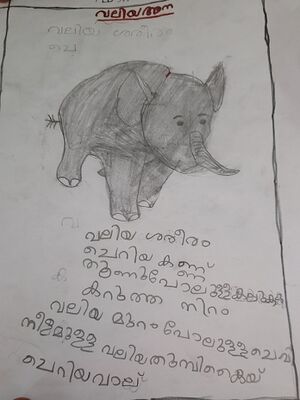 വലിയആന
വലിയ ശരീരം
ചെ
വ
വലിയ ശരീരം
ചെറിയ കണ്ണ്
തൂണുപോലുള്ളകാലുകൾ
ക
കറുത്ത നിറം
വലിയ മുറംപോലുള്ളചെവി
നീളമുള്ള വലിയതുമ്പിക്കൈയ്
ചെറിയവാല്